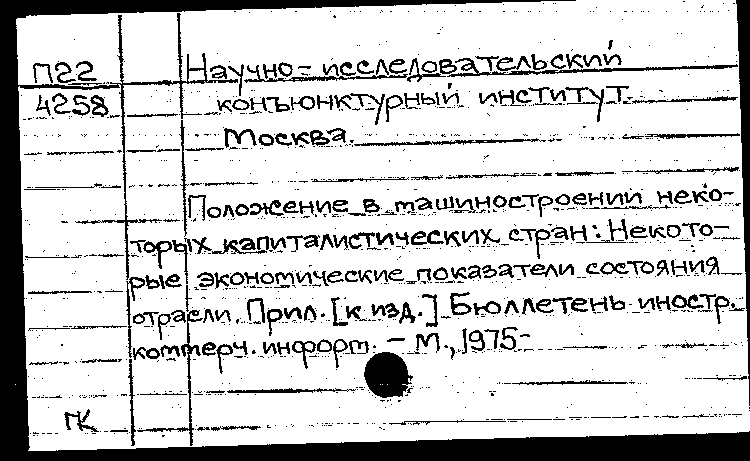 П22
4258
Научно-исследовательский
конъюнктурный институт.
Москва.
Положение в машиностроении неко-
торых капиталистических стран: Некото-
рые экономические показатели состояния
отрасли. Прил. [к изд.] Бюллетень иностр.
коммерч. информ. – М., 1975-
ГК